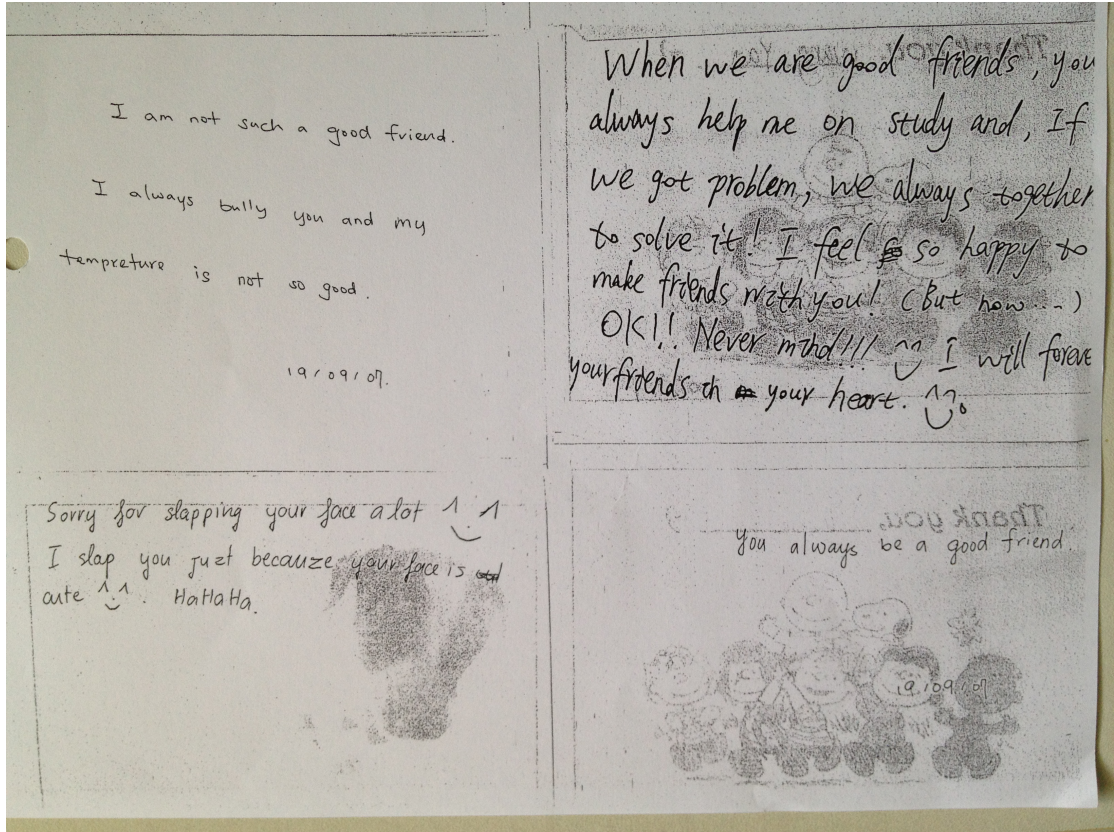 I am not such a good friend.
I always bully you and my
tempreture is not so good.
19/09/07.
When we are good friends, you
always help me on study and, If
we got problem, we always together
to solve it! I feel so happy to
make friends with you! (But now...)
OK!!! Never mind!!! I will foreve
your friends in your heart.
Sorry for slapping your face a lot
I slap you just becauze your face is
cute HaHaHa.
Thank you,
you always be a good friend.
19/09/07